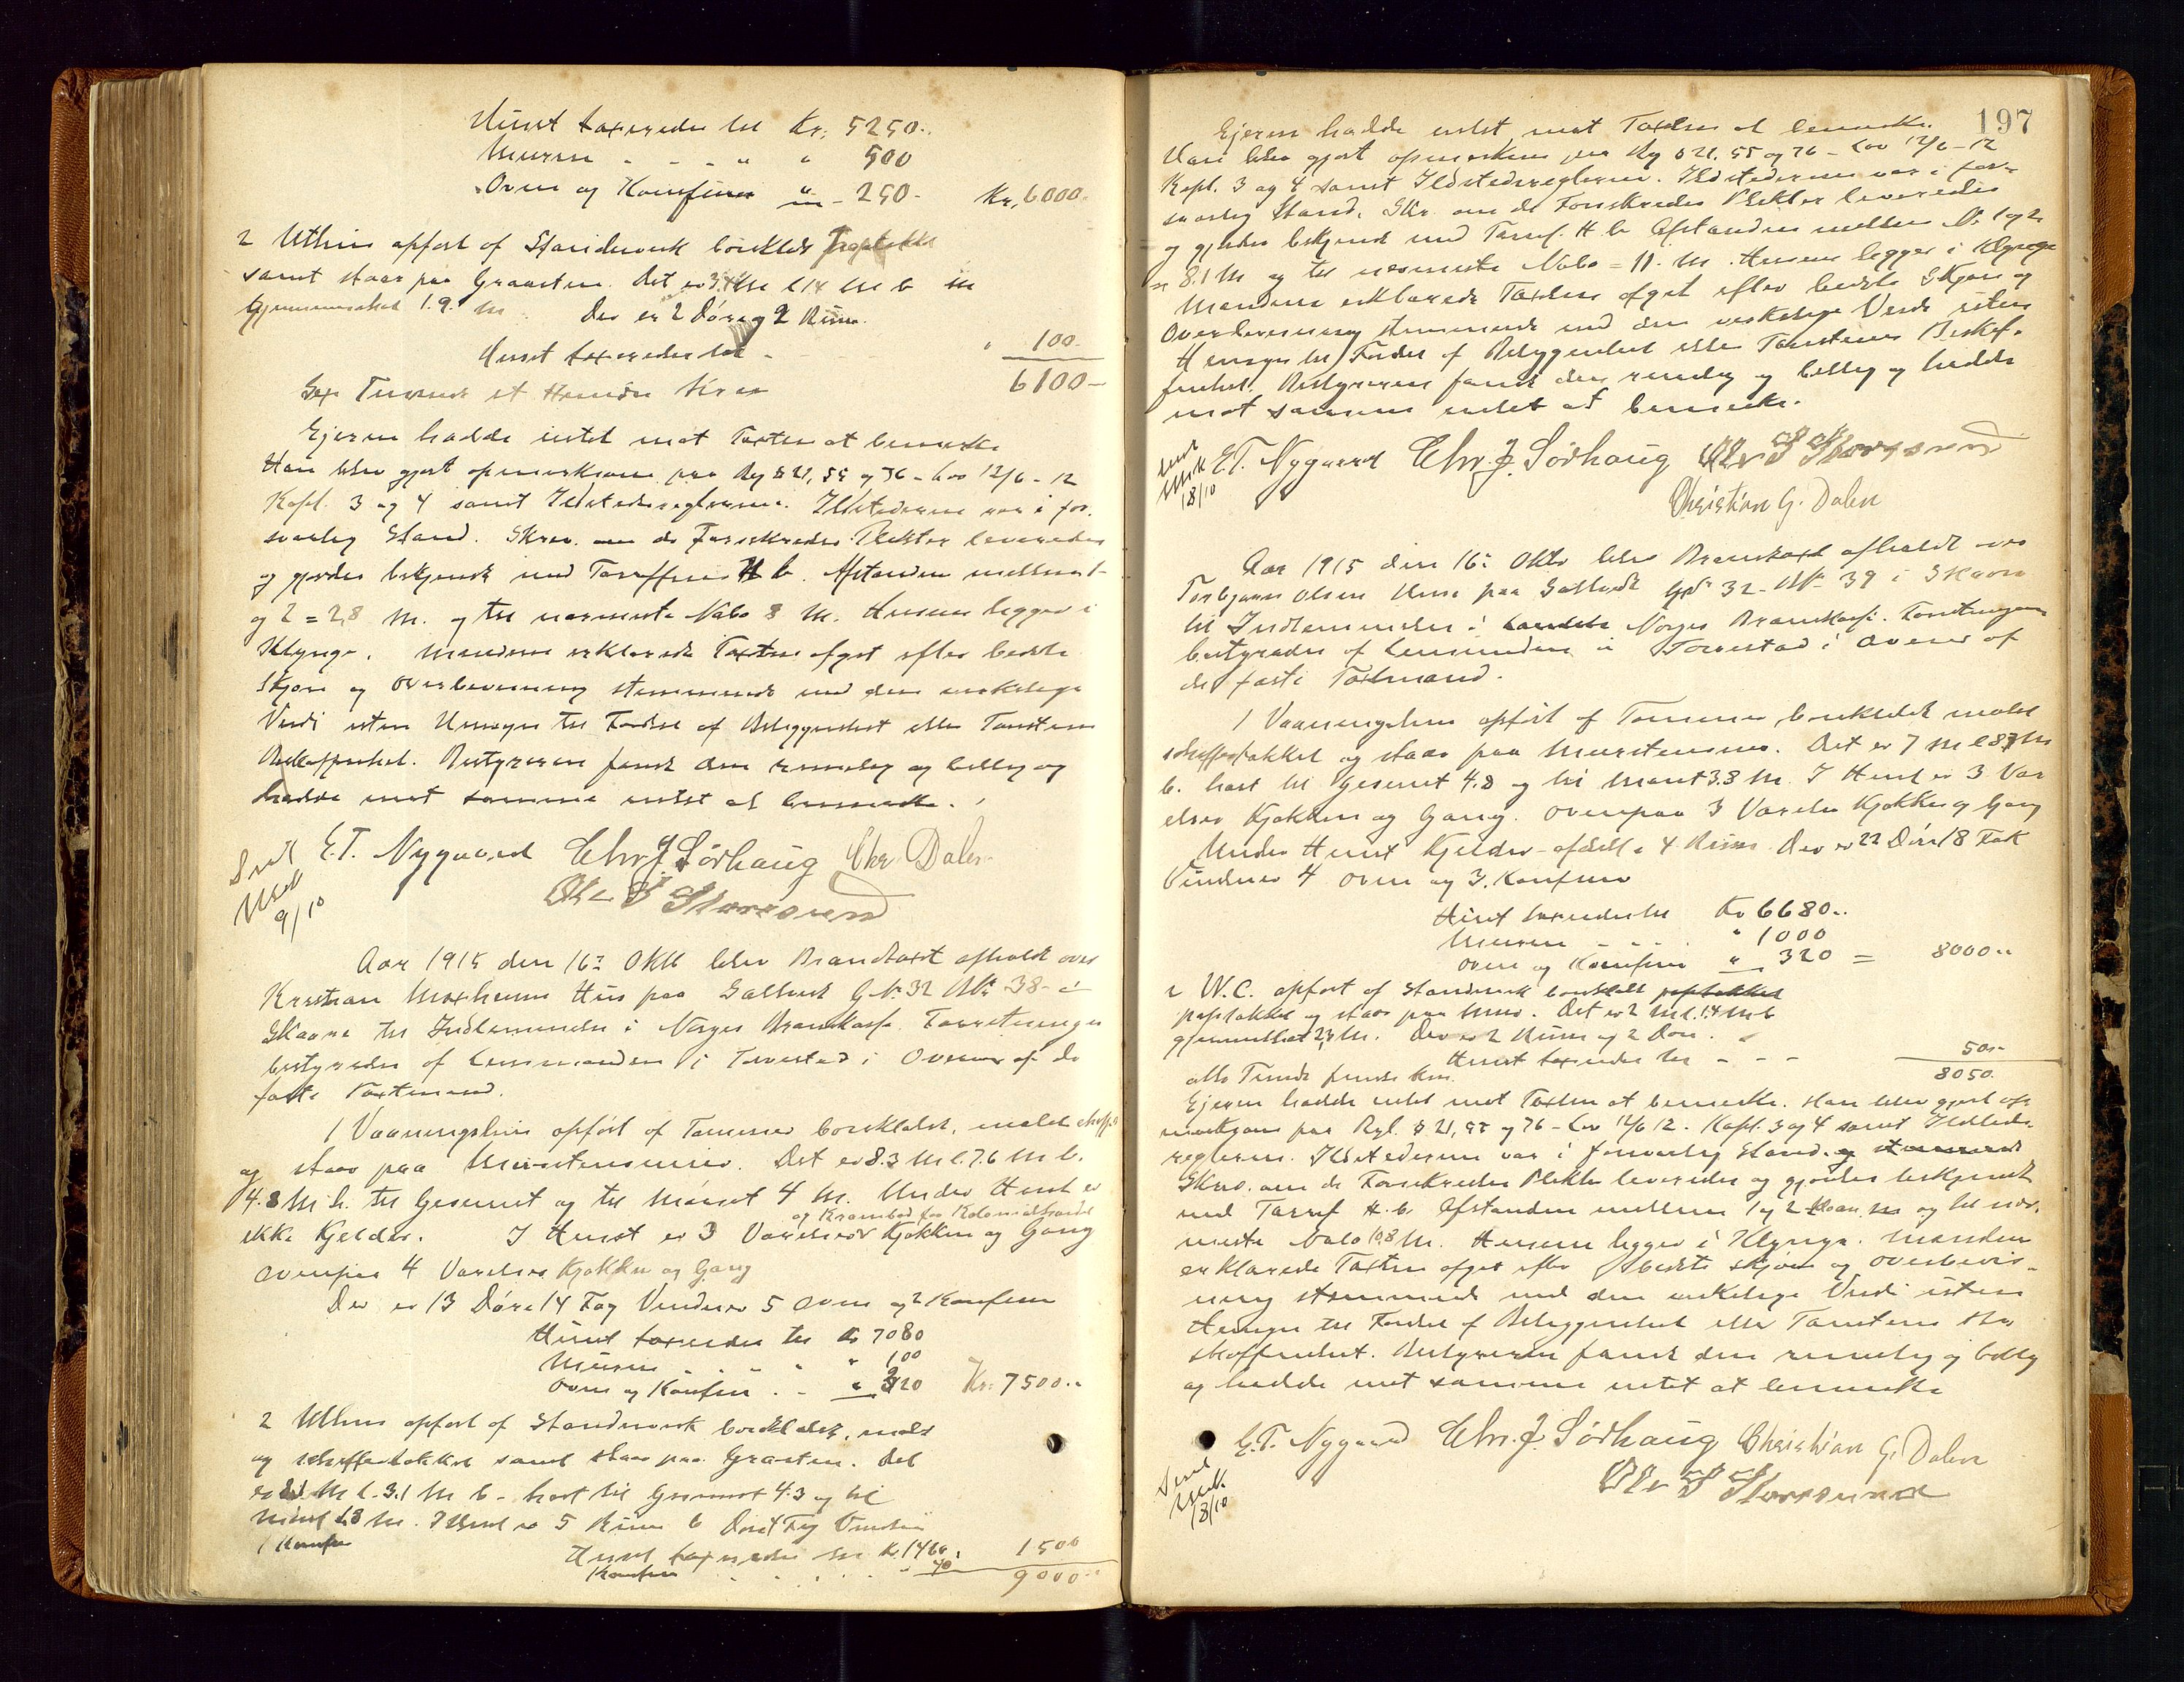 Huset taxeredes til Kr. 5250..
Muren - - - " " 500
Oven og Komfuren " - 250- Kr. 6000.
2 Uthus opført af Standerverk bordkledt
samt staar paa Graasten. Det er 3.4 M l 1.4 M b
Gjennemsnit 1.9. M Der er 2 Døre og 2 Rum.
Huset taxeredes til - " 100-
Sex Tusende et Hundre Kroner 6100-
Ejeren hadde intet mot Taxten at bemerke
Han blev gjort opmerksom paa Reg § 21, 55 og 76 - Lov 12/6 - 12
Kapl. 3 og 4 samt Ildstedsreglerne. Ildstederne var i for-
svarlig Stand. Skrev. om de Forsikredes Plikter leveredes
og gjordes bekjendt med Tariffens H b. Afstanden mellem 1-
og 2 = 2,8 M. og til nærmeste Nabo 8 M. Husene ligger i
Klynge. Mændene erklærede Taxten afgit efter bedste
Skjøn og Overbevisning stemmende med den virkelige
Verdi uten Hensyn til Fordel af Beliggenhet eller Tomtens
Beskaffenhet. Bestyreren fandt den rimelig og billig og
hadde mot samme intet at bemerke.
Sendt
Utsk
9/10
E.T. Nygaard Chr. J. Sörhaug Chr Dalen
Ole S Storesund
Aar 1915 den 16de Oktb blev Brandtaxt afholdt over
Kristian Moxheims Hus paa Salhus G.Nr. 32 BNr. 38 - i
Skaare til Indlemmelse i Norges Brandkasse. Forretningen
bestyredes af Lensmanden i Torvestad i Overvær af de
faste Taxtmænd.
1 Vaaningshus opført af Tømmer bordkledt, malet
og staar paa Murstensmur. Det er 8.3 M l. 7.6 M b.
4.8 M h. til Gesimset og til Mønset 4 M. Under Huset er
og Krambod for Kolonialhandel
ikke Kjelder. I Huset er 3 Værelser Kjøkken og Gang
Ovenpaa 4 Værelser Kjøkken og Gang
Der er 13 Døre 14 Fag Vinduer 5 Ovne og 2 Komfur
Huset taxeredes til Kr 7080
Muren - - - " " 100
Oven og Komfur - - " 320 Kr. 7500..
2 Uthus opført af Standerverk bordkledt, malt
og skiffertækket samt staar paa Graasten. Det
er M l. 3.1 M b - høit til Gesimset 4.3 og til
Mønset 1.3 M. I Huset er 5 Rum 6 Døre 4 Fag Vinduer
1 Komfur
Huset taxeredes til Kr. 1460. 1500
Komfur - - - - " 40 9000..
197
Ejeren hadde intet mot Taxten at bemerke.
Han blev gjort opmerksom paa Reg § 21. 55 og 76 - Lov 12/6 - 12
Kapl. 3 og 4 samt Ildstedsreglerne. Ildstederne var i for-
svarlig Stand. Skr. om de Forsikredes Plikter leveredes
og gjordes bekjendt med Tarif. H b. Afstanden mellem Nr 1 og 2
= 8.1 M og til nærmeste Nabo = 11. M. Husene ligger i Klynge
Mændene erklærede Taxten afgit efter bedste Skjøn og
Overbevisning stemmende med den virkelige Verdi uten
Hensyn til Fordel af Beliggenhet eller Tomtens Beskaf-
fenhet. Bestyreren fandt den rimelig og billig og hadde
mot samme intet at bemerke.
Sendt
Utsk
18/10
E.T. Nygaard Chr. J. Sörhaug Ole S Storesund
Christian G. Dalen
Aar 1915 den 16de Oktb blev Brandtaxt afholdt over
Torbjørn Olsens Hus paa Salhus GNr 32 - BNr 39 i Skaare
til Indlemmelse i Norges Brandkasse. Forretningen
bestyredes af Lensmanden i Torvestad i Overvær af
de faste Taxtmænd.
1 Vaaningshus opført af Tømmer, bordkledt malet
skiffertækket og staar paa Murstensmur. Det er 7 M l 8.7 M
b. høit til Gesimset 4.8 og til Mønset 3.8 M. I Huset er 3 Vær
elser Kjøkken og Gang. Ovenpaa 3 Værelser Kjøkken og Gang
Under Huset Kjelder - afdelt i 4 Rum. Der er 22 Døre 18 Fak
Vinduer 4 Ovne og 3. Komfur
Huset taxeredes til Kr 6680..
Muren - - - - " 1000
Oven og Komfur " 320 = 8000..
2 W.C. opført af Standerverk bordkledt paptækket
paptækket og staar paa Mur. Det er 2 M l. 1.4 M b
gjennemsnit 2,3 M. Der er 2 Rum og 2 Døre.
Huset taxeredes til - - - 50..
otte Tusende femti Kr. 8050.
Ejeren hadde intet mot Taxten at bemerke. Han blev gjort op-
merksom paa Regl. § 21, 55 og 76 - Lov 12/6 12. Kapl. 3 og 4 samt Ildsteds-
reglerne. Ildstederne var i forsvarlig Stand. og stemmende
Skrev. om de Forsikredes Plikter leveredes og gjordes bekjendt
med Tarif H. b. Afstanden mellem 1 og 2 og til nær-
meste Nabo 10,8 M. Husene ligger i Klynge. Mændene
erklærede Taxten afgit efter bedste Skjøn og Overbevis-
ning stemmende med den virkelige Verdi uten
Hensyn til Fordel af Beliggenhet eller Tomtens Be-
skaffenhet. Bestyreren fandt den rimelig og billig
og hadde mot samme intet at bemerke
Sendt
Utsk.
18/10
E.T. Nygaard Chr. J. Sörhaug Christian G. Dalen
Ole S Storesund